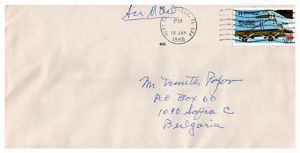 Air Mail
PM
16 JAN
1986
Mr. Dimiter Popov
P.O. Box 60
1090 Sofia C
Bulgaria